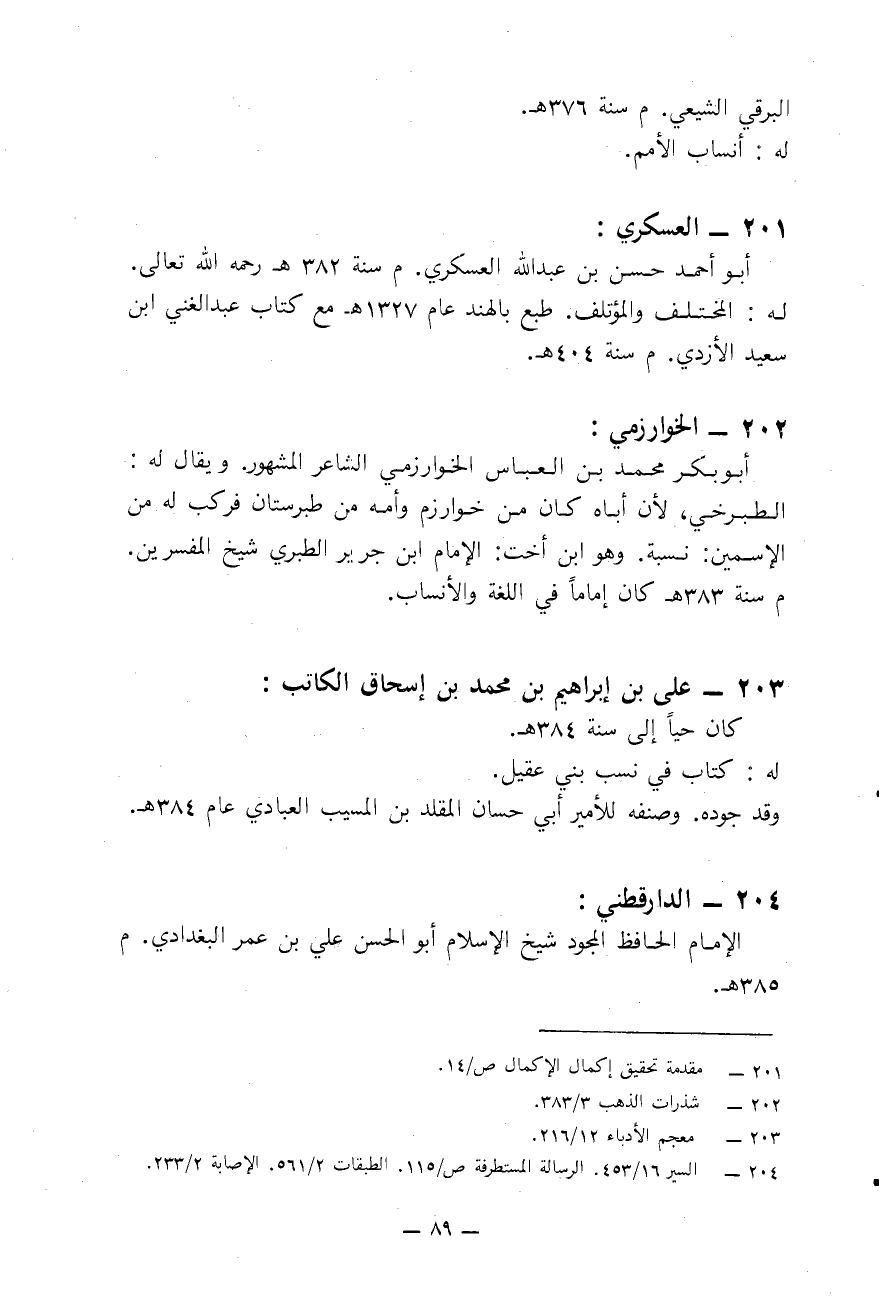 البرقي الشيعي. م سنة ٣٧٦هـ.
له : أنساب الأمم.
٢٠١ ــ العسكري :
أبو أحمد حسن بن عبدالله العسكري. م سنة ٣٨٢ هـ رحمه الله تعالى.
له : المختلف والمؤتلف. طبع بالهند عام ١٣٢٧هـ مع كتاب عبدالغني ابن
سعيد الأزدي. م سنة ٤٠٤هـ.
٢٠٢ ــ الخوارزمي :
أبوبكر محمد بن العباس الخوارزمي الشاعر المشهور. ويقال له :
الطبرخي، لأن أباه كان من خوارزم وأمه من طبرستان فركب له من
الإسمين: نسبة. وهو ابن أخت: الإمام ابن جرير الطبري شيخ المفسرين.
م سنة ٣٨٣هـ كان إماماً في اللغة والأنساب.
٢٠٣ ــ علي بن إبراهيم بن محمد بن إسحاق الكاتب :
كان حياً إلى سنة ٣٨٤هـ.
له : كتاب في نسب بني عقيل.
وقد جوده. وصنفه للأمير أبي حسان المقلد بن المسيب العبادي عام ٣٨٤هـ.
٢٠٤ ــ الدارقطني :
الإمام الحافظ المجود شيخ الإسلام أبو الحسن علي بن عمر البغدادي. م
٣٨٥هـ.
٢٠١ ــ مقدمة تحقيق إكمال الإكمال ص/١٤.
٢٠٢ ــ شذرات الذهب ٣٨٣/٣.
٢٠٣ ــ معجم الأدباء ٢١٦/١٢.
٢٠٤ ــ السير ٤٥٣/١٦. الرسالة المستطرفة ص/١١٥. الطبقات ٥٦١/٢. الإصابة ٢٣٣/٢.
ــ ٨٩ ــ